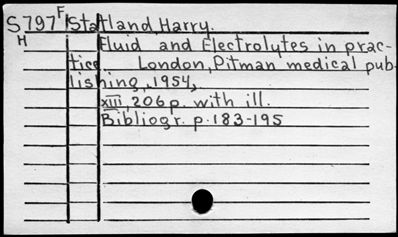 S797 F Statland, Harry.
H Fluid and Electrolytes in prac-
tice. London, Pitman medical pub-
lishing, 1954,
XIII, 206 p. with ill.
Bibliogr. p. 183-195